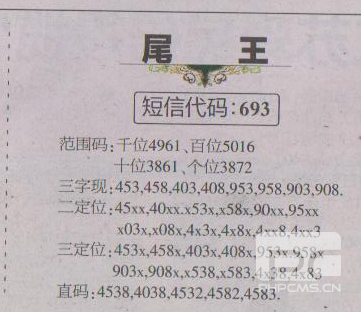 尾 王
短信代码:693
范围码:千位4961、百位5016
十位3861、个位3872
三字现:453,458,403,408,953,958,903,908.
二定位:45xx,40xx.x53x,x58x,90xx,95xx
x03x,x08x,4x3x,4x8x,4xx8,4xx3
三定位:453x,458x,403x,408x,953x,958x
903x,908x,x538,x583,4x38,4x83
直码:4538,4038,4532,4582,4583.
PHPCMS.CN